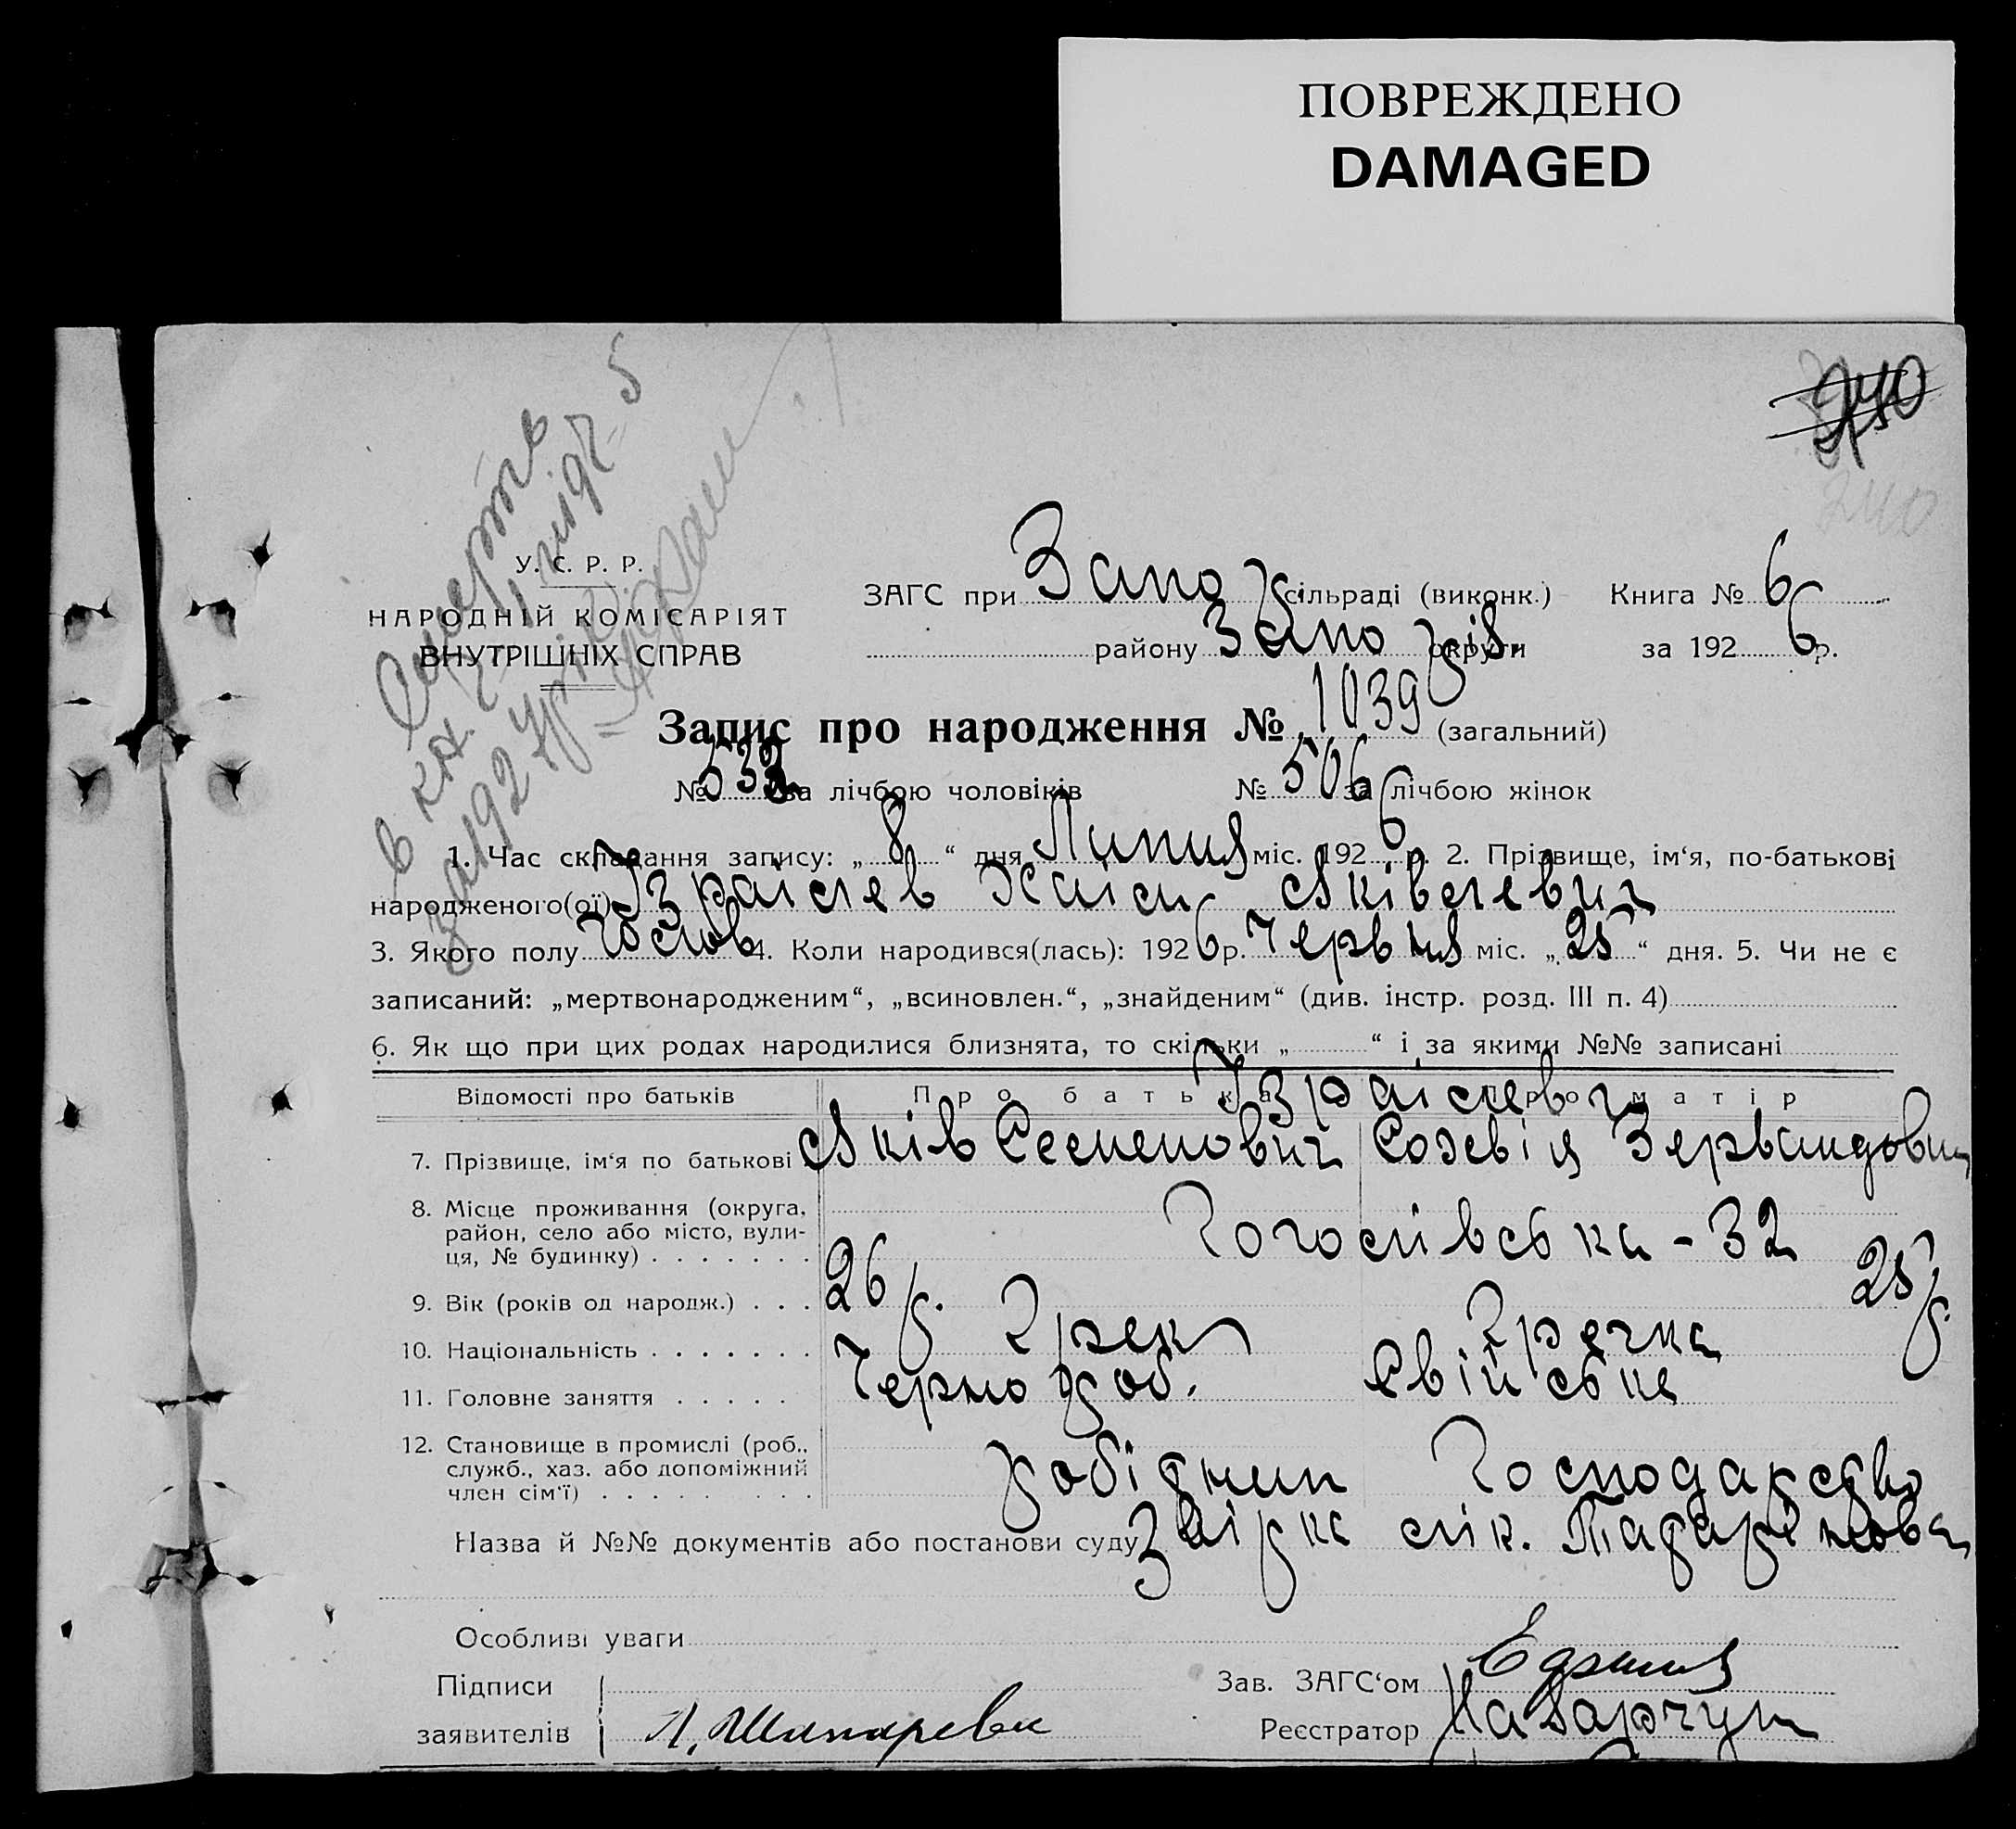 ПОВРЕЖДЕНО
DAMAGED
240
240
Смерть
в кн. 2
за 192
У. С. Р. Р.
НАРОДНІЙ КОМІСАРІЯТ
ВНУТРІШНІХ СПРАВ
ЗАГС при Запор сільраді (виконк.) Книга № 6
району Запоріз. округи за 1926 р.
Запис про народження № 1039 (загальний)
№ 533 за лічбою чоловіків № 506 за лічбою жінок
1. Час складання запису: „ 8 “ дня Липня міс. 1926 р. 2. Прізвище, ім‘я, по-батькові
народженого(ої) Ізраілев Яківлевич
3. Якого полу чолов 4. Коли народився(лась): 1926 р. Червня міс. „ 25 “ дня. 5. Чи не є
записаний: „мертвонародженим“, „всиновлен.“, „знайденим“ (див. інстр. розд. III п. 4)
6. Як що при цих родах народилися близнята, то скільки „ “ і за якими №№ записані
Відомості про батьків Про батька Про матір
Ізраілеви
7. Прізвище, ім‘я по батькові Яків Семенович
8. Місце проживання (округа,
район, село або місто, вули-
ця, № будинку) . . . . . . . - 32
9. Вік (років од народж.) . . . 26 р. 25 р.
10. Національність . . . . . . . Грек Гречка
11. Головне заняття . . . . . Чернороб. Свійське
12. Становище в промислі (роб.,
служб., хаз. або допоміжний
член сім‘ї) . . . . . . . . робітник Господарство
Назва й №№ документів або постанови суду лік.
Особливі уваги
Підписи
заявителів
Зав. ЗАГС‘ом
Реєстратор